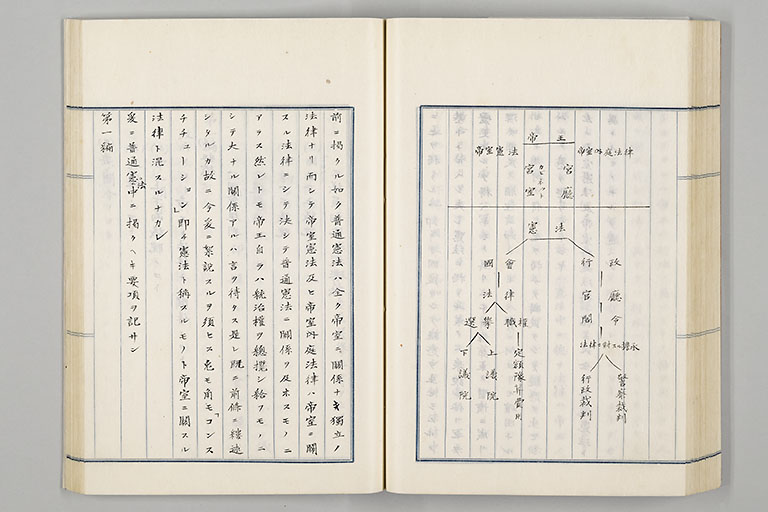 帝王
帝室憲法
帝室内庭法律
宮室
カビネット
宮廳
憲法
國會
法律
選擧
職權
下議院
上議院
定額豫算費用
行政
官廳
閣令
行政裁判
警察裁判
前ニ掲クル如ク普通憲法ハ全ク帝室ニ關係ナキ獨立ノ
法律ナリ而シテ帝室憲法及ヒ帝室内庭法律ハ帝室ニ關
スル法律ニシテ決シテ普通憲法ニ關係ヲ及ホスモノニ
アラス然レトモ帝王自ラハ統治權ヲ總攬シ給フモノニ
シテ大ナル關係アルハ言ヲ待タス是レ既ニ前條ニ縷述
シタルカ故ニ今爰ニ絮説スルヲ須ヒス兎モ角モ「コンス
チチューション」即チ憲法ト稱スルモノト帝室ニ關スル
法律ト混スルナカレ
爰ニ普通憲法中ニ掲クヘキ要項ヲ記サン
第一編